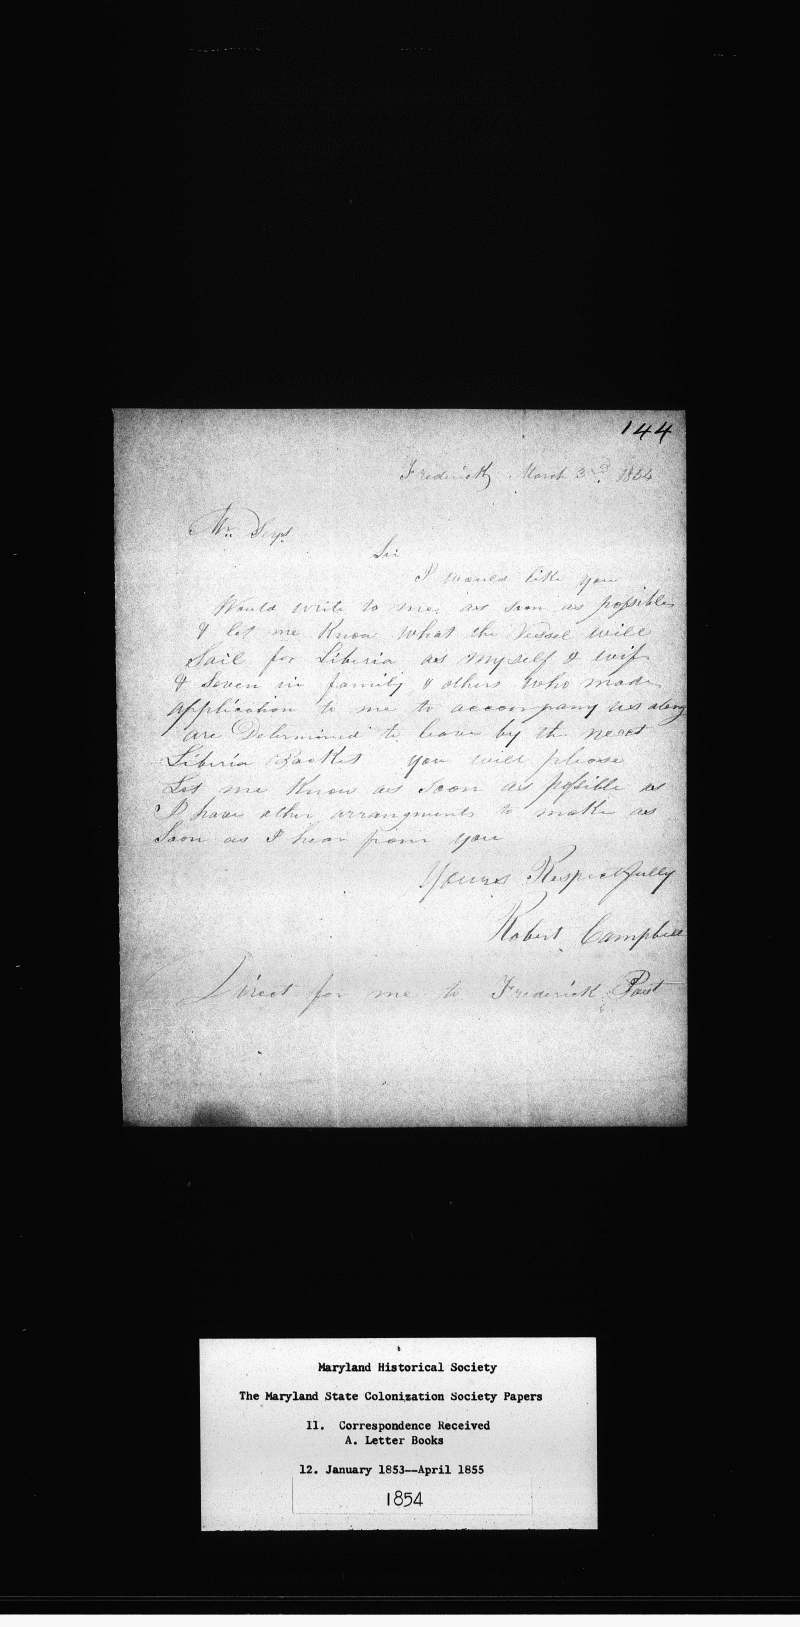 144
Frederick March 3rd 1854
Mr.
Sir
I would like you
Would write to me as soon as possible
& let me Know what the Vessel will
Sail for Liberia as myself & wife
& Seven in family & others who made
application to me to accompany us along
are Determined to leave by the next
Liberia Packet you will please
Let me Know as Soon as possible as
I have other arrangments to make as
Soon as I hear from you
Yours Respectfully
Robert Campbell
Direct for me to Frederick Post
Maryland Historical Society
The Maryland State Colonization Society Papers
11. Correspondence Received
A. Letter Books
12. January 1853--April 1855
1854